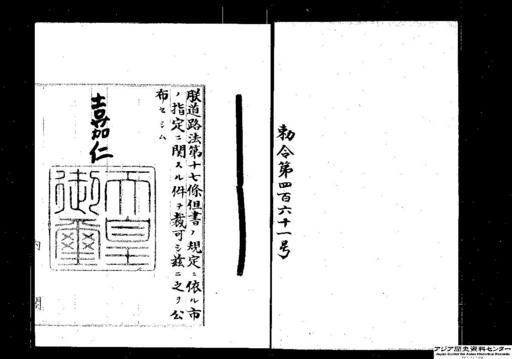 勅令第四百六十一号
朕道路法第十七條但書ノ規定ニ依ル市
ノ指定ニ関スル件ヲ裁可シ茲ニ之ヲ公
布セシム
嘉仁
天皇
御璽
内閣
アジア歴史資料センター
Japan Center for Asian Historical Records